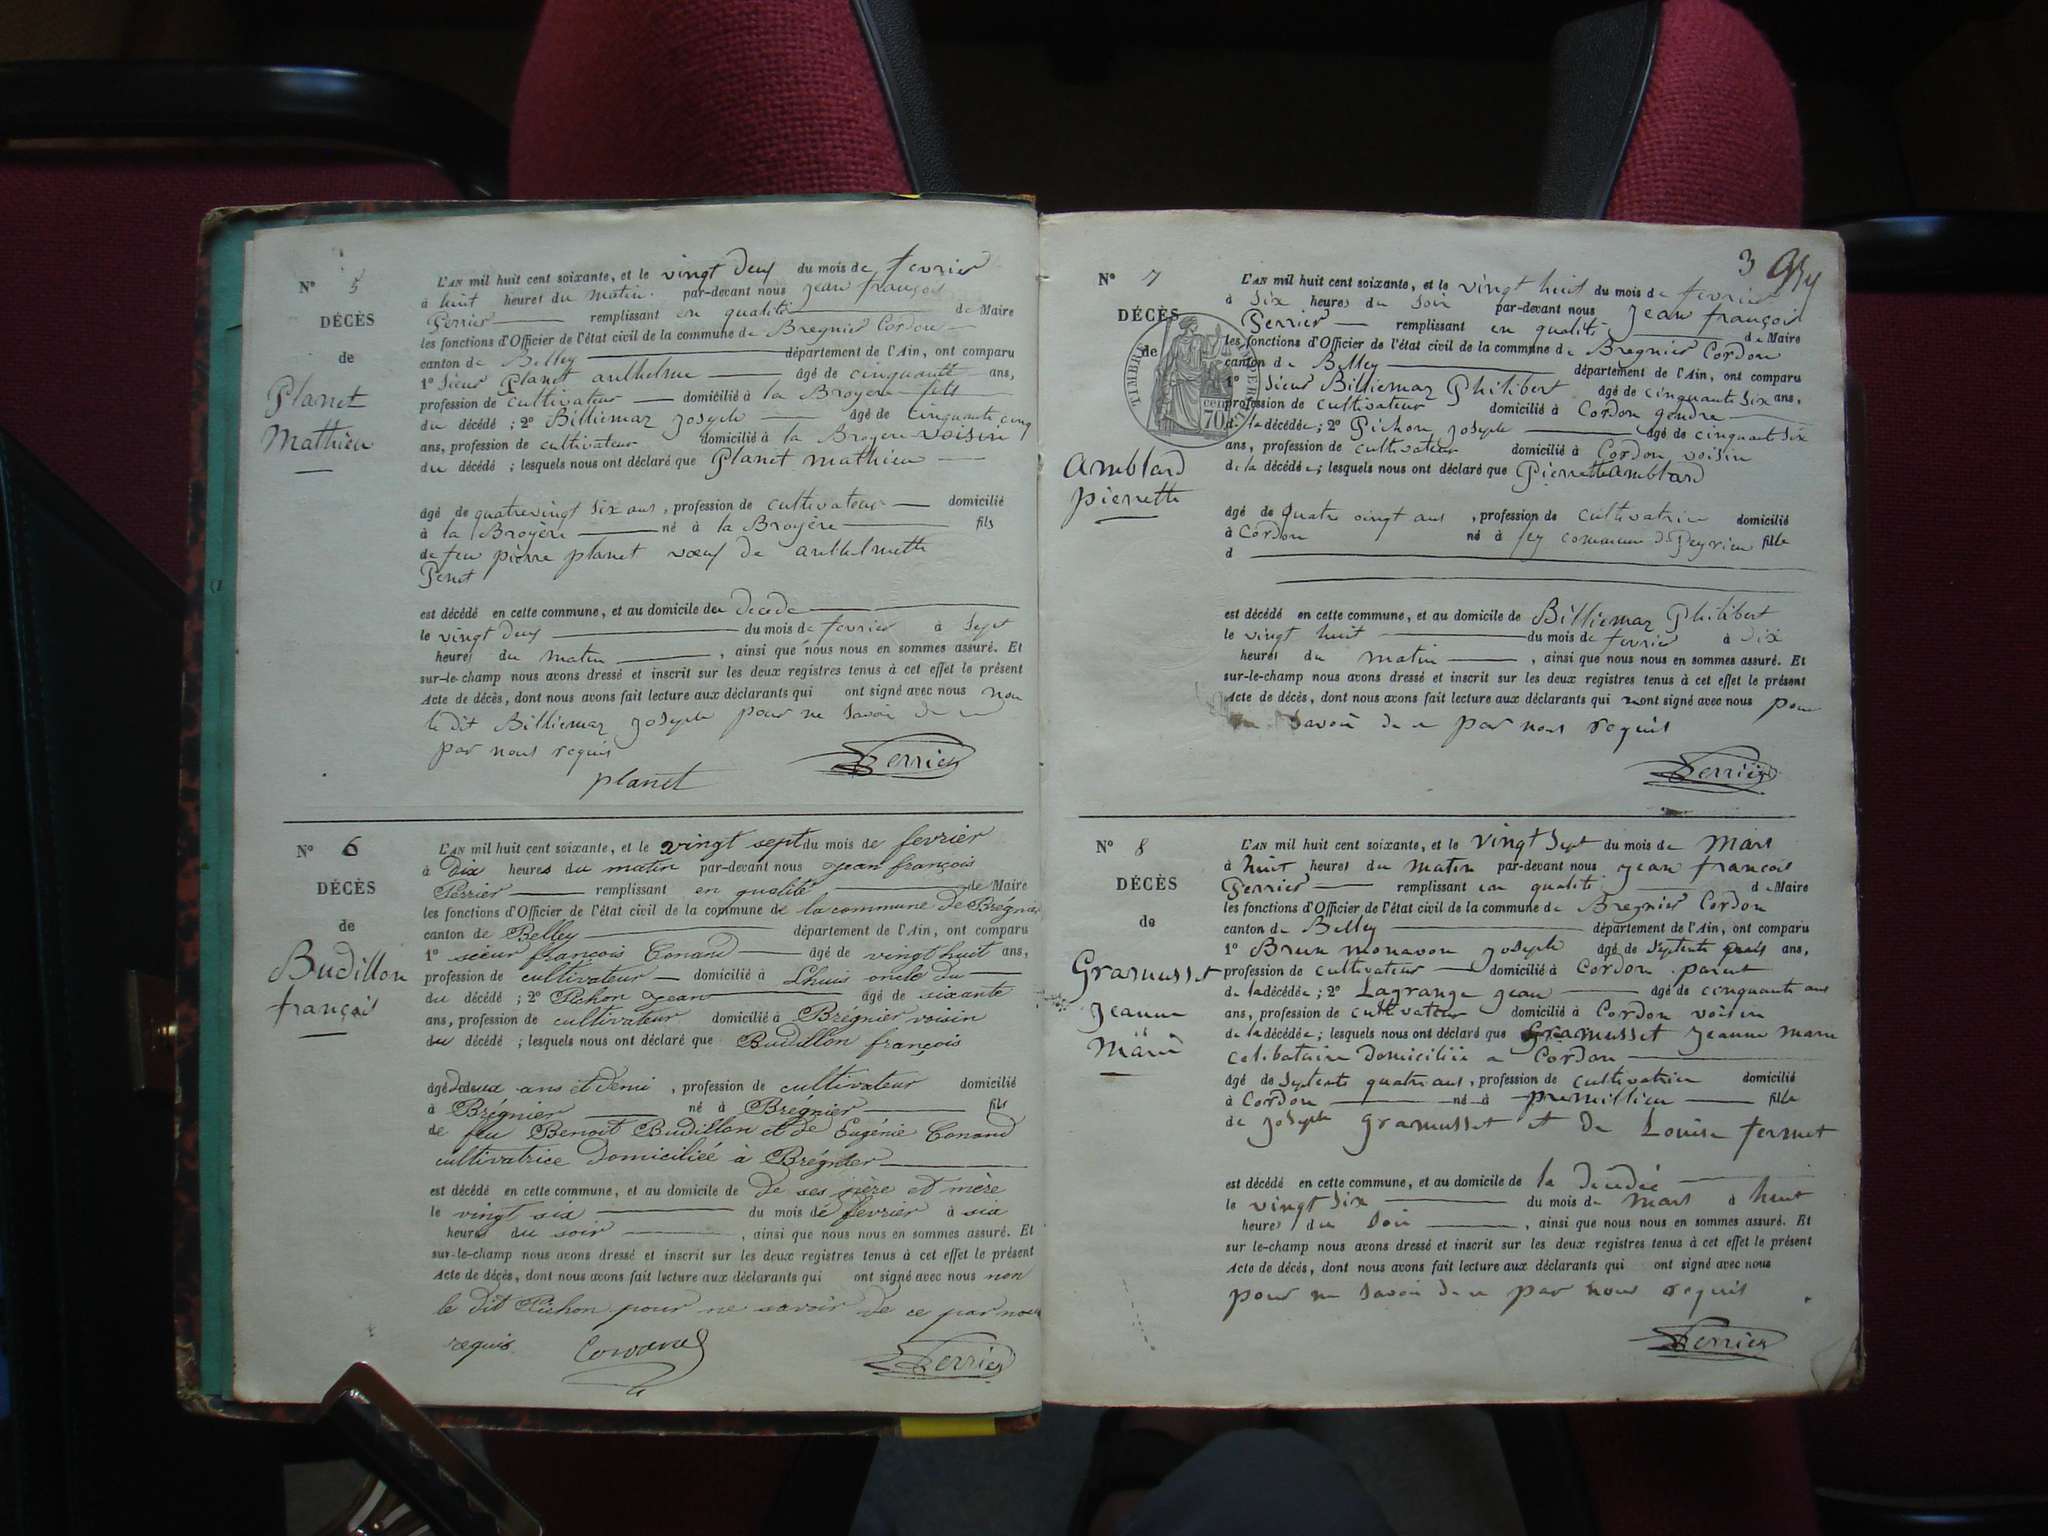 N° 5
DÉCÈS
de
Planet
Mathieu
L'AN mil huit cent soixante, et le vingt deux du mois de fevrier
à huit heures du matin par-devant nous jean françois
Perrier remplissant en qualité de Maire
les fonctions d'Officier de l'état civil de la commune de Bregnier Cordon
canton de Belley département de l'Ain, ont comparu
1° Sieur Planet anthelme âgé de cinquante ans,
profession de cultivateur domicilié à la Broyère fils
du décédé ; 2° Billiemaz joseph âgé de cinquante cinq
ans, profession de cultivateur domicilié à la Broyere voisin
du décédé ; lesquels nous ont déclaré que Planet mathieu
âgé de quatrevingt six ans, profession de cultivateur domicilié
à la Broyère né à la Broyère fils
de feu pierre planet voeuf de anthelmette
Penet
est décédé en cette commune, et au domicile du decede
le vingt deux du mois de fevrier à sept
heures du matin, ainsi que nous nous en sommes assuré. Et
sur-le-champ nous avons dressé et inscrit sur les deux registres tenus à cet effet le présent
Acte de décès, dont nous avons fait lecture aux déclarants qui ont signé avec nous non
le dit Billiemaz joseph pour ne savoir de ce
par nous requis
planet Perrier
N° 6
DÉCÈS
de
Budillon
françois
L'AN mil huit cent soixante, et le vingt sept du mois de fevrier
à Dix heures du matin par-devant nous jean françois
Perrier remplissant en qualité de Maire
les fonctions d'Officier de l'état civil de la commune de la commune de Brégnier
canton de Belley département de l'Ain, ont comparu
1° sieur françois Conand âgé de vingt huit ans,
profession de cultivateur domicilié à Lhuis oncle du
du décédé ; 2° Pichon jean âgé de soixante
ans, profession de cultivateur domicilié à Brégnier voisin
du décédé ; lesquels nous ont déclaré que Budillon françois
âgé de deux ans et demi, profession de cultivateur domicilié
à Brégnier né à Brégnier fils
de feu Benoit Budillon et de Eugénie Conand
cultivatrice domiciliéé à Brégnier
est décédé en cette commune, et au domicile de de ses père et mère
le vingt six du mois de fevrier à six
heures du soir, ainsi que nous nous en sommes assuré. Et
sur-le-champ nous avons dressé et inscrit sur les deux registres tenus à cet effet le présent
Acte de décès, dont nous avons fait lecture aux déclarants qui ont signé avec nous non
le dit Pichon pour ne savoir de ce par nous
requis Perrier
3
N° 7
DÉCÈS
de
TIMBRE IMPERIAL
70 cen
Amblard
pierrette
L'AN mil huit cent soixante, et le vingt huit du mois de fevrier
à Six heures du Soir par-devant nous jean françois
Perrier remplissant en qualité de Maire
les fonctions d'Officier de l'état civil de la commune de Bregnier Cordon
canton de Belley département de l'Ain, ont comparu
1° Sieur Billiemaz Philibert âgé de cinquante Six ans,
profession de cultivateur domicilié à Cordon gendre
de la décédée ; 2° Pichon joseph âgé de cinquante Six
ans, profession de cultivateur domicilié à Cordon voisin
de la décédée ; lesquels nous ont déclaré que Pierrette Amblard
âgé de quatre vingt ans, profession de cultivatrice domicilié
à Cordon né à fey commune de Peyrieu fille
d
est décédé en cette commune, et au domicile de Billiemaz Philibert
le vingt huit du mois de fevrier à Dix
heures du matin, ainsi que nous nous en sommes assuré. Et
sur-le-champ nous avons dressé et inscrit sur les deux registres tenus à cet effet le présent
Acte de décès, dont nous avons fait lecture aux déclarants qui n'ont signé avec nous pour
ne savoir de ce par nous requis
Perrier
N° 8
DÉCÈS
de
Gramusset
jeanne
Marie
L'AN mil huit cent soixante, et le vingt Sept du mois de Mars
à huit heures du matin par-devant nous jean françois
Perrier remplissant en qualité de Maire
les fonctions d'Officier de l'état civil de la commune de Bregnier Cordon
canton de Belley département de l'Ain, ont comparu
1° Brun monavon joseph âgé de Septente ans,
profession de cultivateur domicilié à Cordon parent
de la décédée ; 2° Lagrange jean âgé de cinquante ans
ans, profession de cultivateur domicilié à Cordon voisin
de la décédée ; lesquels nous ont déclaré que Gramusset jeanne marie
celibataire domiciliée a Cordon
âgé de Septente quatre ans, profession de cultivatrice domicilié
à Cordon né à premillieu fille
de joseph Gramusset et de Louise fermet
est décédé en cette commune, et au domicile de la décédée
le vingt Six du mois de Mars à huit
heures du Soir, ainsi que nous nous en sommes assuré. Et
sur le-champ nous avons dressé et inscrit sur les deux registres tenus à cet effet le présent
Acte de décès, dont nous avons fait lecture aux déclarants qui ont signé avec nous
pour ne savoir de ce par nous requis
Perrier